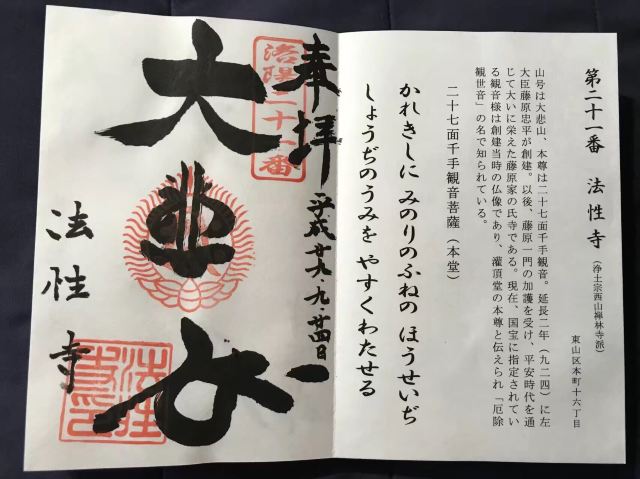 第二十一番 法性寺
(浄土宗西山禅林寺派)
東山区本町十六丁目
山号は大悲山、本尊は二十七面千手観音。延長二年(九二四)に左
大臣藤原忠平が創建。以後、藤原一門の加護を受け、平安時代を通
じて大いに栄えた藤原家の氏寺である。現在、国宝に指定されてい
る観音様は創建当時の仏像であり、灌頂堂の本尊と伝えられ「厄除
観世音」の名で知られている。
二十七面千手観音菩薩(本堂)
かれきしに みのりのふねの ほうせいぢ
しょうぢのうみを やすくわたせる
奉拝
平成廿九、九、廿四日
洛陽二十一番
大悲
法性寺